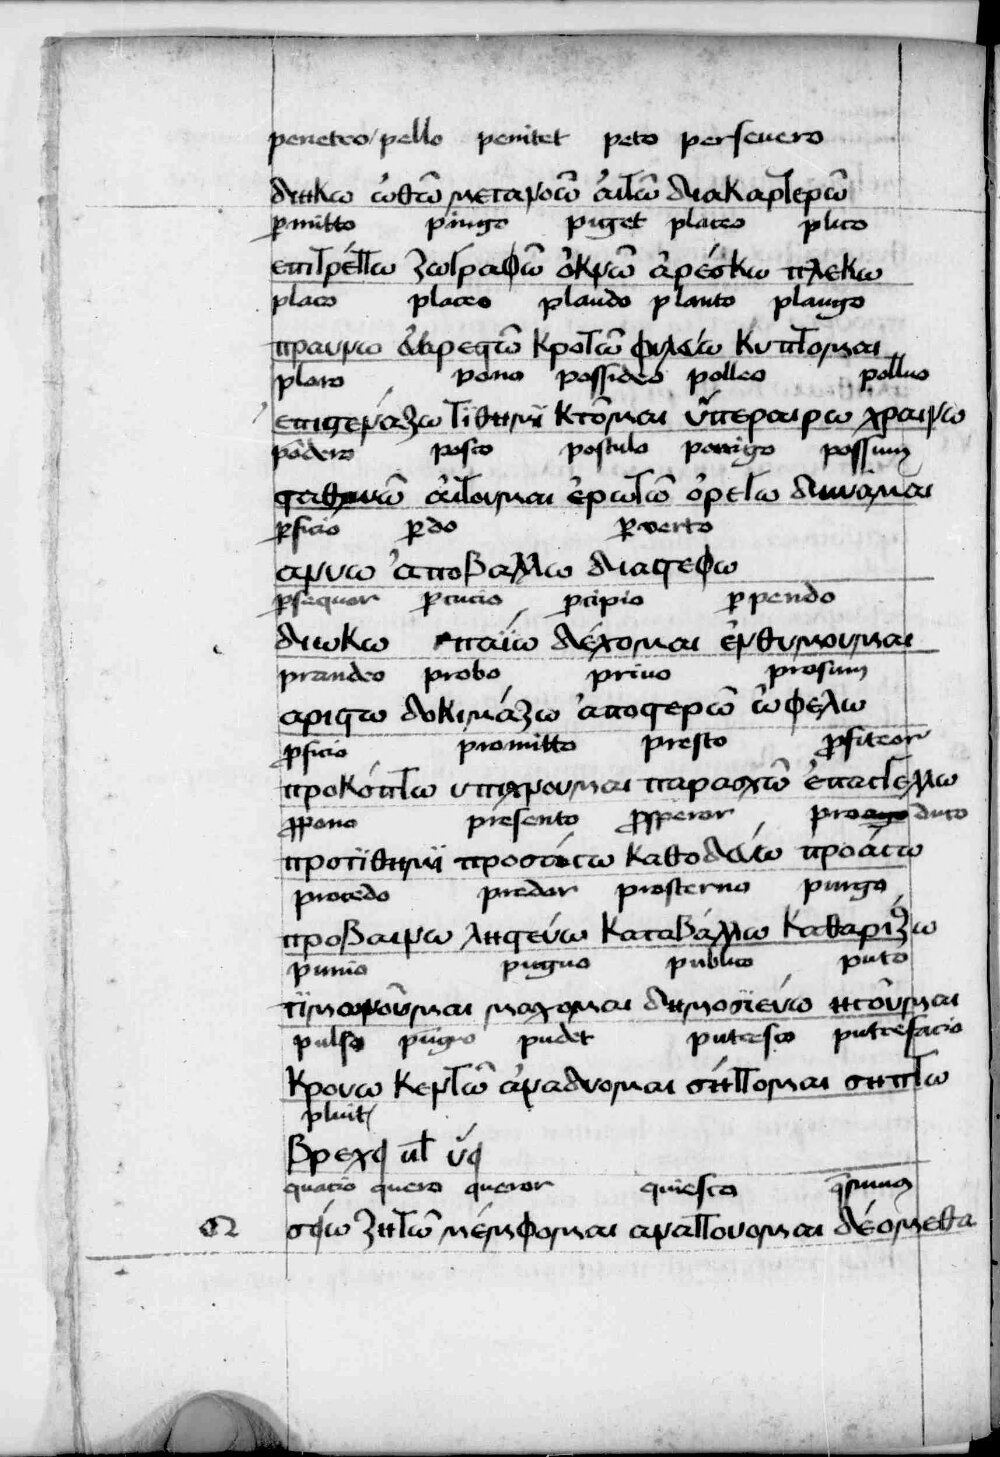 penetro / pello penitet peto perseuero
διηκω ὠθῶ μετανοῶ ἀιτῶ διακαρτερῶ
pmitto pingo piget placeo plico
επιτρέπω ζωγραφῶ ὀκνῶ ἀρέσκω πλεκω
placo placeo plaudo planto plango
πραυνω ἀυαρεστῶ κροτῶ φυτεύω κυπτομαι
ploro pono possideo polleo polluo
επιστενάζω τίθημι κτῶμαι ὑπεραιρω χραινω
pōdero posco postulo porrigo possum
σταθμῶ ἀιτουμαι ἐρωτῶ ὀρεγω δυναμαι
pficio pdo puerto
ανυω ἀποβαλλω διαστρεφω
psequor pcucio pcipio ppendo
διωκω παίω δέχομαι ἐνθυμουμαι
prandeo probo priuo prosum
αριστω δοκιμάζω ἀποστερῶ ὠφελω
pficio promitto presto pfiteor
προκόπτω υπισχνουμαι παρασχῶ ἐπαγγελλω
ppono presento psperor produco
προτίθημι προσάγω κατοδεύω προάγω
procedo predor prosterno purgo
προβαινω ληστεύω καταβάλλω καθαρίζω
punio pugno publico puto
τιμωροῦμαι μαχομαι δημοσιεύω ηγοῦμαι
pulso pūgo pudet putresco putrefacio
κρουω κεντῶ ἀναδυομαι σήπομαι σηπτω
pluit
βρεχει uel ὑει
quacio quero queror quiesco qsumus
Q σείω ζητῶ μέμφομαι αναπαυομαι δέομεθα